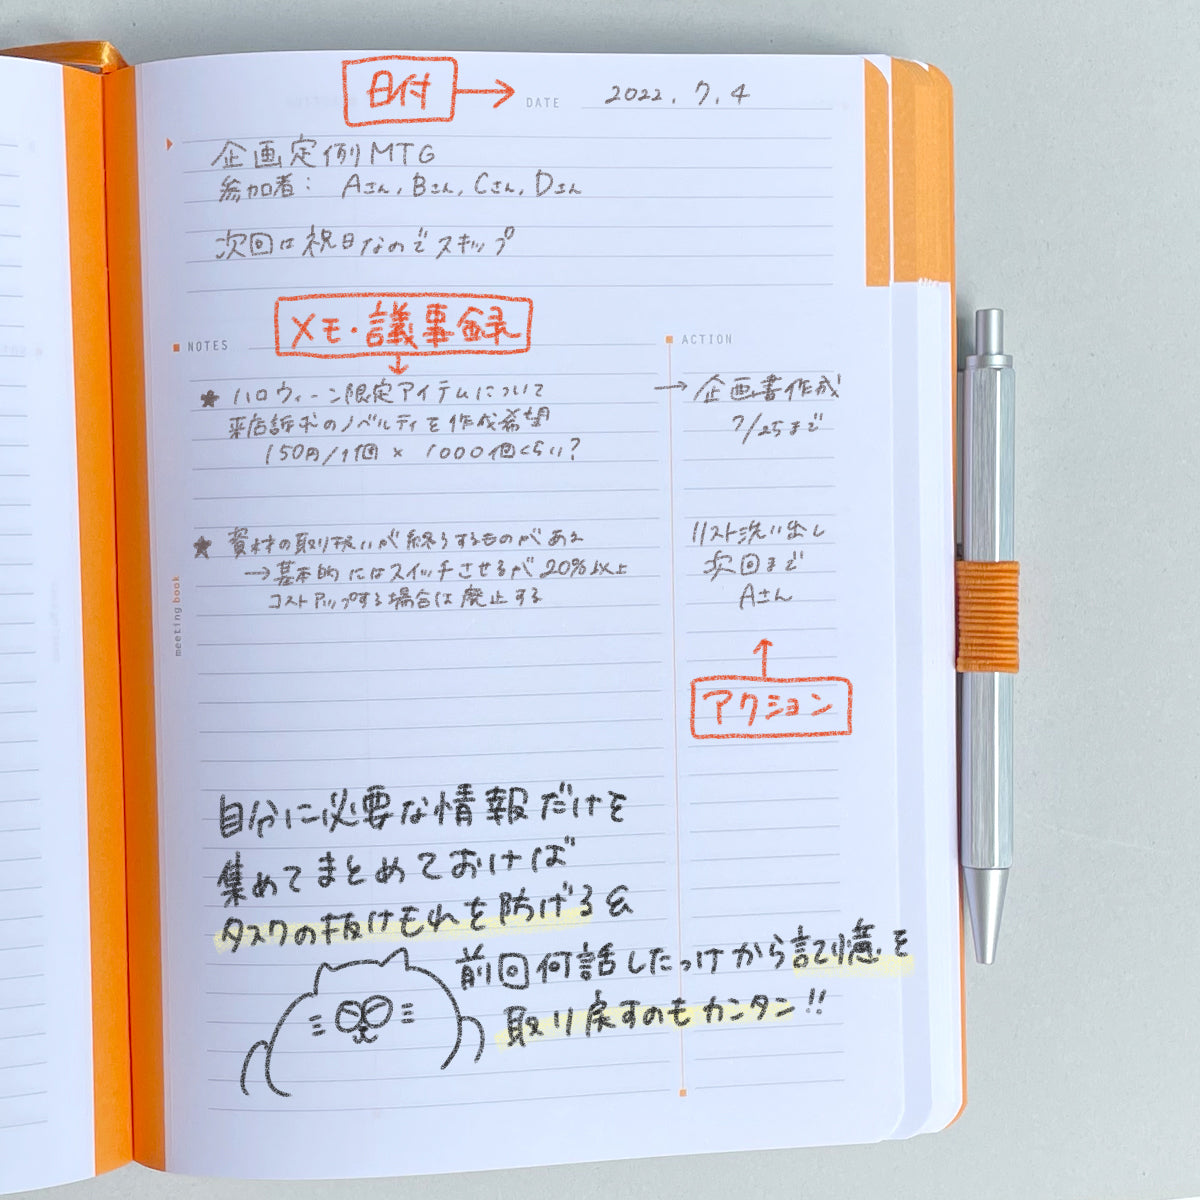 日付→
DATE 2022.7.4
企画定例MTG
参加者: Aさん, Bさん, Cさん, Dさん
次回は祝日なのでスキップ
メモ・議事録
NOTES
★ ハロウィーン限定アイテムについて
来店訴求のノベルティを作成希望
150円/1個 × 1000個くらい?
★ 資材の取り扱いが終うするものがある
→基本的にはスイッチさせるが20%以上
コストアップする場合は廃止する
ACTION
→ 企画書作成
7/25まで
リスト洗い出し
次回まで
Aさん
アクション
meeting book
自分に必要な情報だけを
集めてまとめておけば
タスクの抜けもれを防げる&
前回何話したっけから記憶を
取り戻すのもカンタン!!